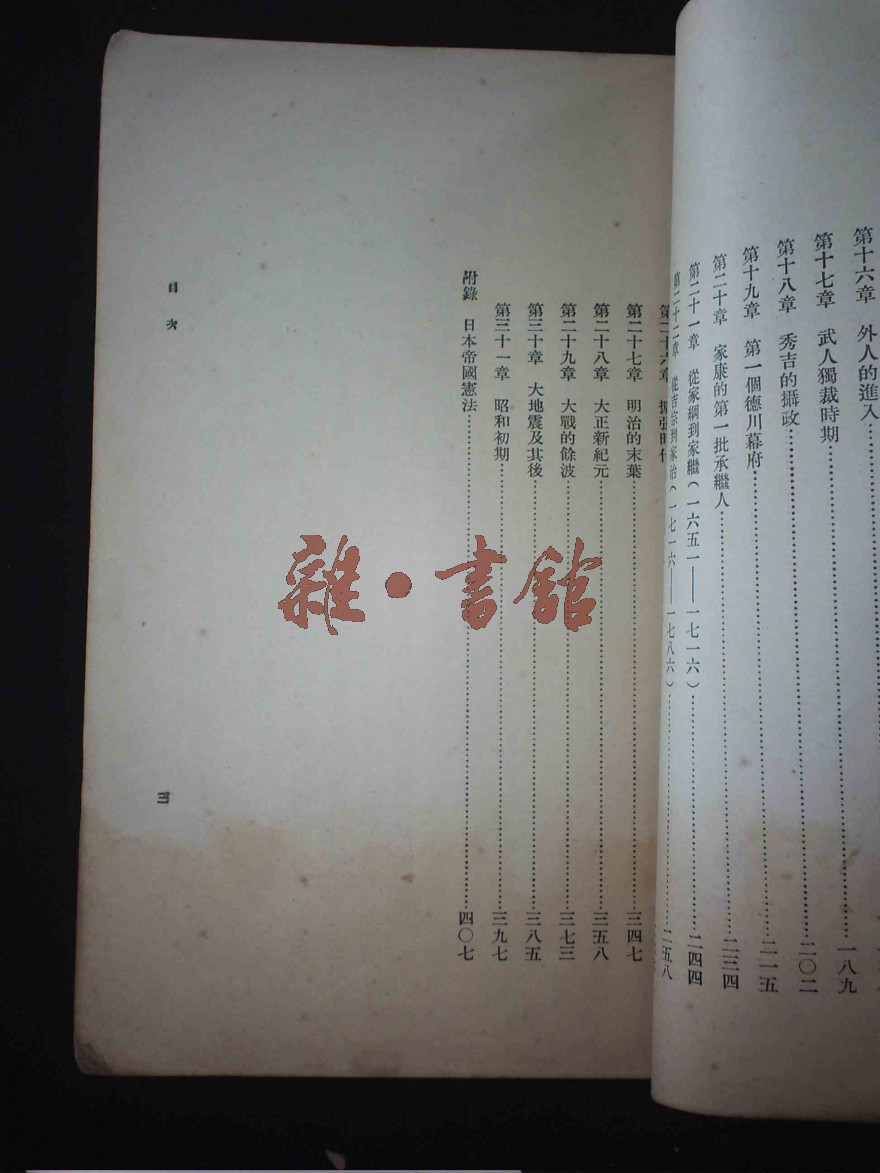 第十六章 外人的進入
第十七章 武人獨裁時期……一八九
第十八章 秀吉的攝政……二〇二
第十九章 第一個德川幕府……二一五
第二十章 家康的第一批承繼人……二三四
第二十一章 從家綱到家繼(一六五一——一七一六)……二四四
第二十二章 從吉宗到家治(一七一六——一七八六)……二五八
第二十六章
第二十七章 明治的末葉……三四七
第二十八章 大正新紀元……三五八
第二十九章 大戰的餘波……三七三
第三十章 大地震及其後……三八五
第三十一章 昭和初期……三九七
附錄 日本帝國憲法……四〇七
目次
三
雜·書館